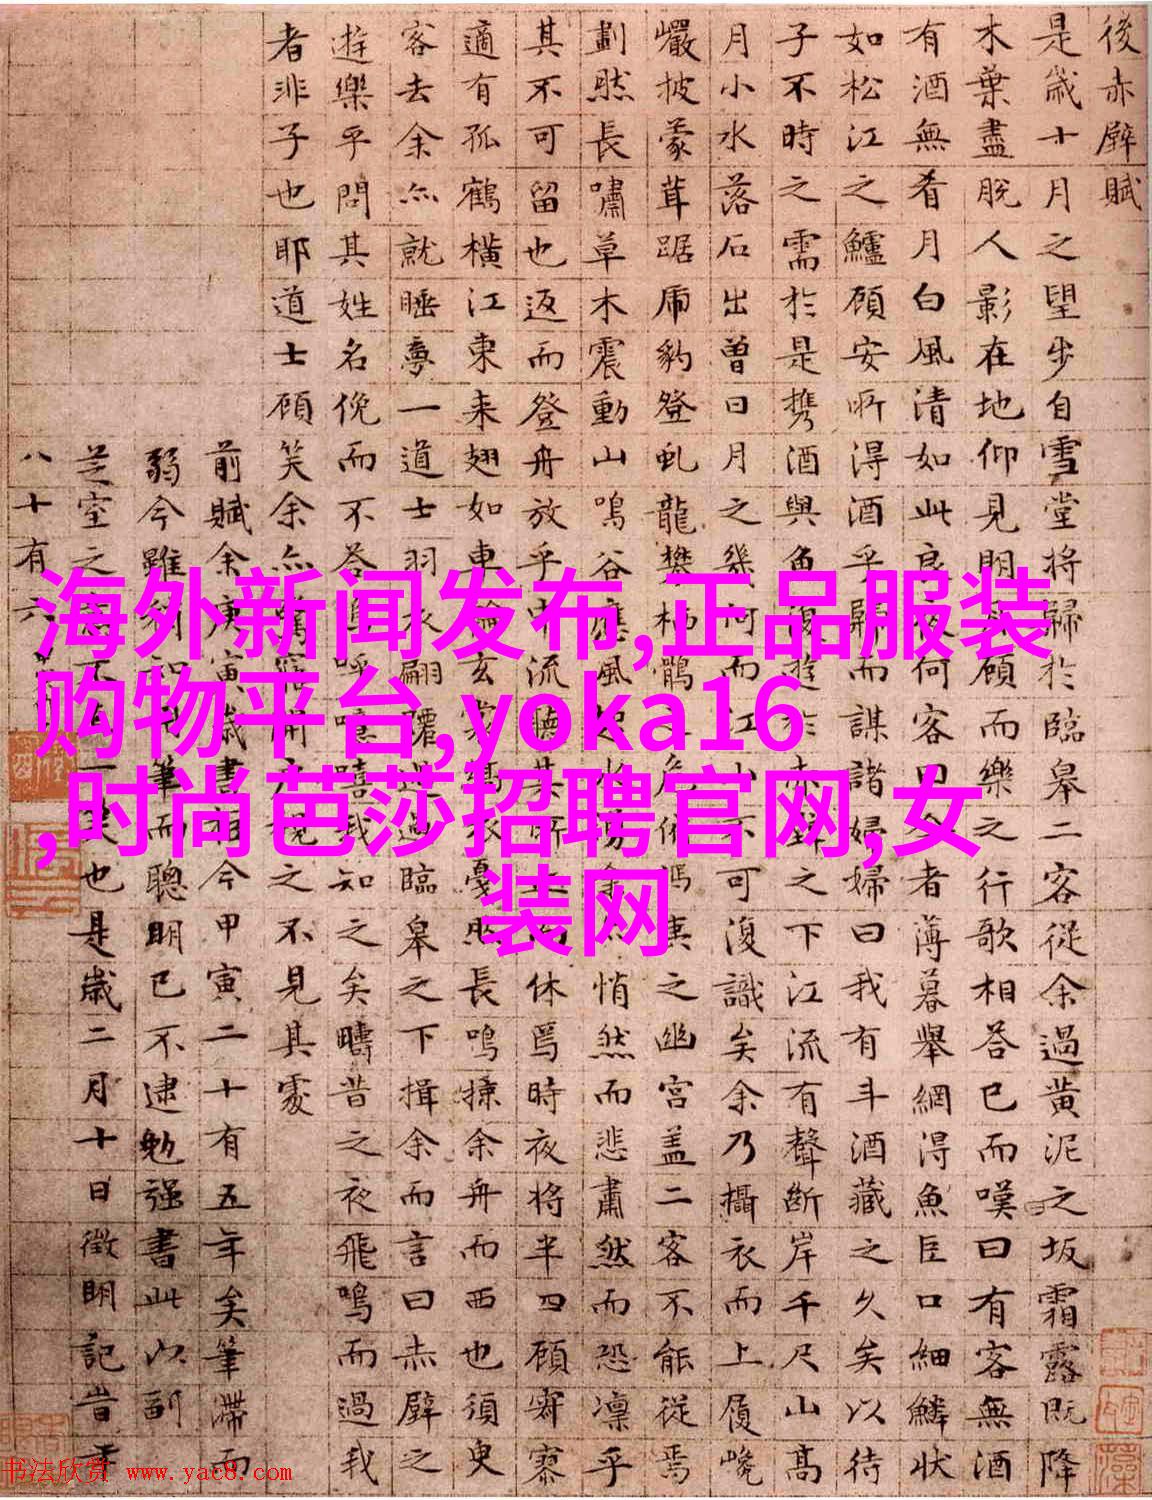 後赤壁賦
是歲十月之望步自雪堂將歸於臨皋二客從余過黃泥之坂霜露既降
木葉盡脫人影在地仰見明月顧而樂之行歌相答已而嘆曰有客無酒
有酒無肴月白風清如此良夜何客曰今者薄暮舉網得魚巨口細鱗狀
如松江之鱸顧安所得酒乎歸而謀諸婦婦曰我有斗酒藏之久矣以待
子不時之需於是携酒與魚復遊於赤壁之下江流有聲斷岸千尺山高
月小水落石出曾日月之幾何而江山不可復識矣余乃攝衣而上履巉
巖披蒙茸踞虎豹登虬龍攀栖鶻之危巢俯馮夷之幽宮盖二客不能從焉
劃然長嘯草木震動山鳴谷應風起水湧余亦悄然而悲肅然而恐凜乎
其不可留也返而登舟放乎中流聽其所止而休焉時夜將半四顧寂寥
適有孤鶴橫江東来翅如車輪玄裳縞衣戛然長鳴掠余舟而西也須臾
客去余亦就睡夢一道士羽衣翩躚過臨皋之下揖余而言曰赤壁之
遊樂乎問其姓名俛而不答嗚呼噫嘻我知之矣疇昔之夜飛鳴而過我
者非子也耶道士顧笑余亦驚寤開戶視之不見其處
前賦余庚寅歲書今甲寅二十有五年矣筆滯而
弱今雖筆而聰明已不逮勉强書此以副
芝室之不也是歲二月十日徵明記昔年
八十有六
海外新闻发布,正品服装
购物平台,yoka16
,时尚芭莎招聘官网,女
装网
书法欣赏 www.yac8.com